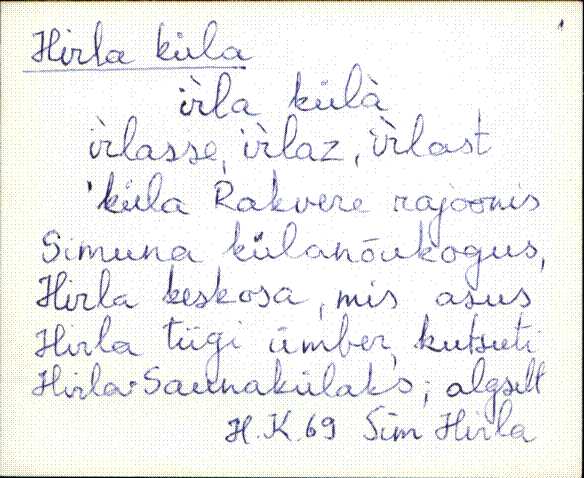 Hirla küla
ìrla külà
ìrlasse, ìrlaz, ìrlast
'küla Rakvere rajoonis
Simuna külanõukogus,
Hirla keskosa, mis asus
Hirla tiigi ümber, kutsuti
Hirla-Saunakülaks; algselt
H.K.69 Sim Hirla